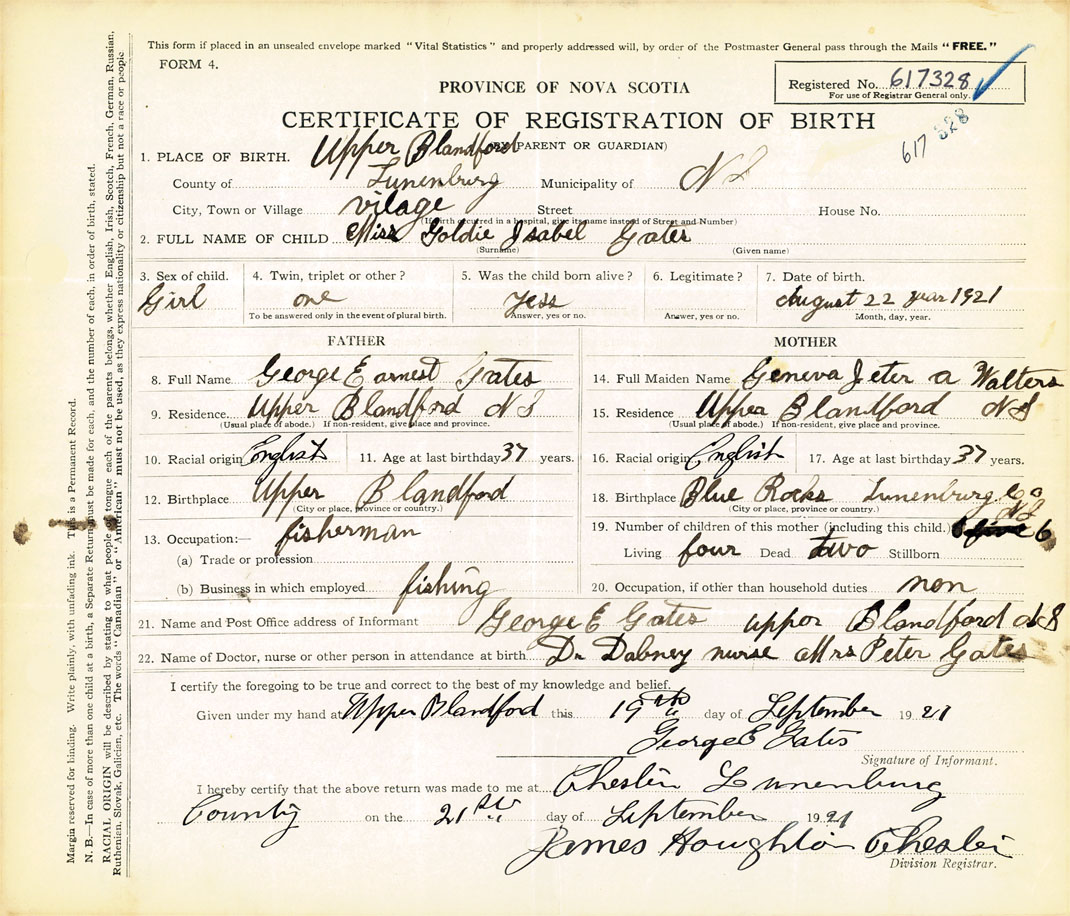 This form if placed in an unsealed envelope marked "Vital Statistics" and properly addressed will, by order of the Postmaster General pass through the Mails "FREE."
FORM 4.
Registered No. 617328
For use of Registrar General only.
PROVINCE OF NOVA SCOTIA
617 328
CERTIFICATE OF REGISTRATION OF BIRTH
(BY PARENT OR GUARDIAN)
1. PLACE OF BIRTH. Upper Blandford
County of Lunenburg Municipality of N S
City, Town or Village vilage Street House No.
(If birth occurred in a hospital, give its name instead of Street and Number)
2. FULL NAME OF CHILD Miss Goldie Isabel Gates
(Surname) (Given name)
3. Sex of child. 4. Twin, triplet or other? 5. Was the child born alive? 6. Legitimate? 7. Date of birth.
Girl one yess August 22 year 1921
To be answered only in the event of plural birth. Answer, yes or no. Answer, yes or no. Month, day, year.
FATHER MOTHER
8. Full Name George Earnest Gates 14. Full Maiden Name Geneva Jeter a Walters
9. Residence Upper Blandford N S 15. Residence Upper Blandford N S
(Usual place of abode.) If non-resident, give place and province. (Usual place of abode.) If non-resident, give place and province.
10. Racial origin English 11. Age at last birthday 37 years. 16. Racial origin English 17. Age at last birthday 37 years.
12. Birthplace Upper Blandford 18. Birthplace Blue Rocks Lunenburg Co N S
(City or place, province or country.) (City or place, province or country.)
13. Occupation:— fisherman 19. Number of children of this mother (including this child.) 6
(a) Trade or profession Living four Dead two Stillborn
(b) Business in which employed fishing 20. Occupation, if other than household duties non
21. Name and Post Office address of Informant George E Gates uppor Blandford N S
22. Name of Doctor, nurse or other person in attendance at birth Dr Dabney nurse Mrs Peter Gates
I certify the foregoing to be true and correct to the best of my knowledge and belief.
Given under my hand at Upper Blandford this 19th day of September 19 21
George E Gates
Signature of Informant.
I hereby certify that the above return was made to me at Chester Lunenburg
County on the 21st day of September 19 21
James Houghton Chester
Division Registrar.
Margin reserved for binding. Write plainly, with unfading ink. This is a Permanent Record.
N. B.—In case of more than one child at a birth, a Separate Return must be made for each, and the number of each, in order of birth, stated.
RACIAL ORIGIN will be described by stating to what people or tongue each of the parents belongs, whether English, Irish, Scotch, French, German, Russian,
Ruthenian, Slovak, Galician, etc. The words "Canadian" or "American" must not be used, as they express nationality or citizenship but not a race or people